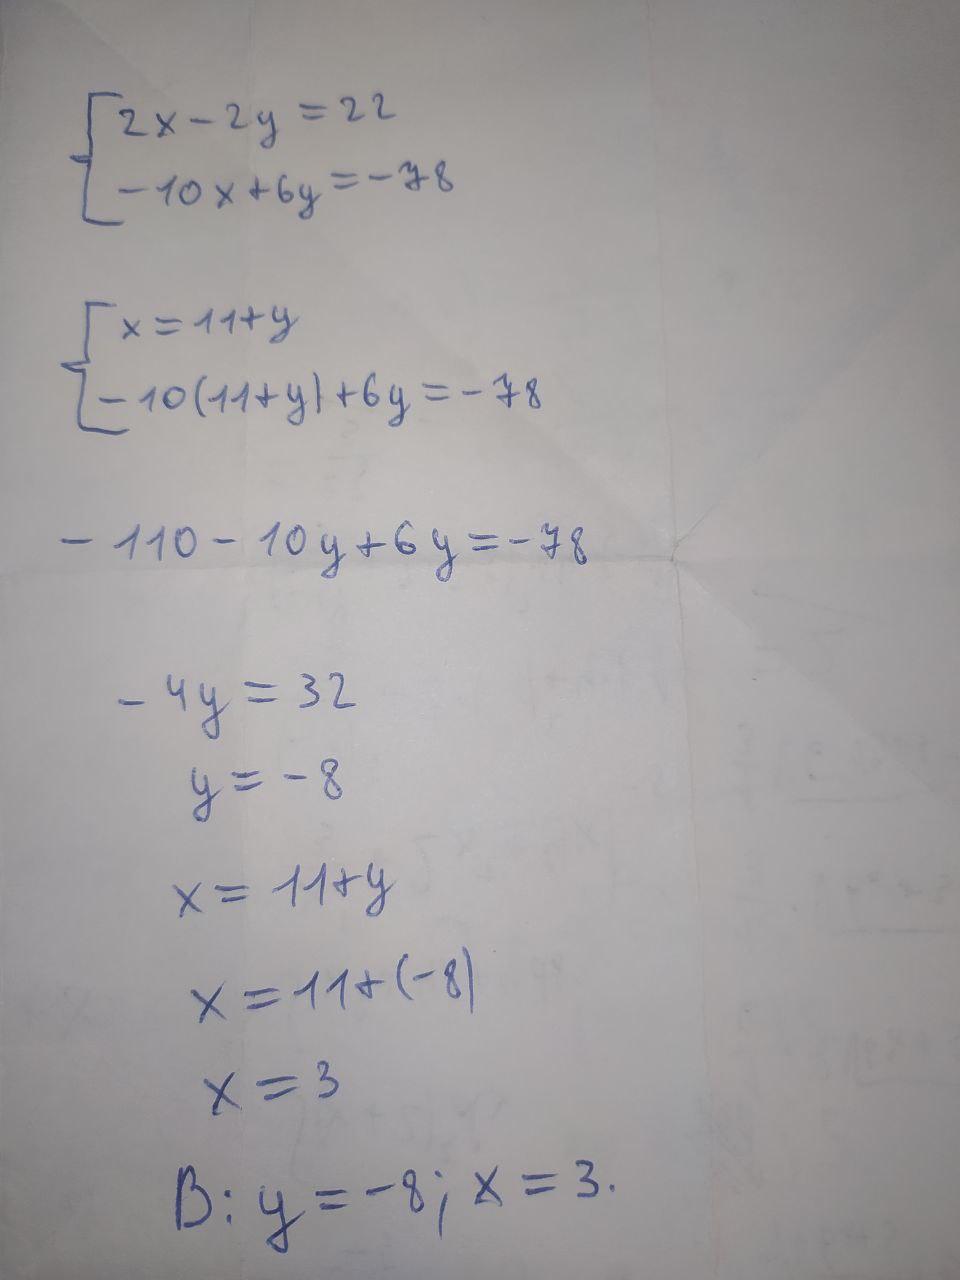 2x-2y=22
-10x+6y=-78
x=11+y
-10(11+y)+6y=-78
-110-10y+6y=-78
-4y=32
y=-8
x=11+y
x=11+(-8)
x=3
В: y=-8; x=3.